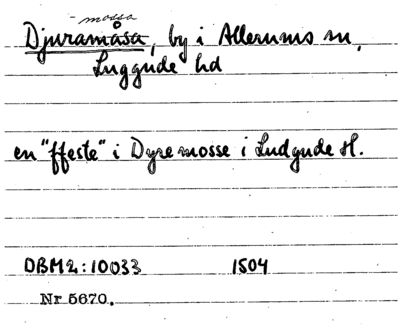 -mossa
Djuramåsa, by i Allerums sn,
Luggude hd
en "ffeste" i Dyremosse i Ludgude H.
DBM2:10033 1504
Nr 5670.